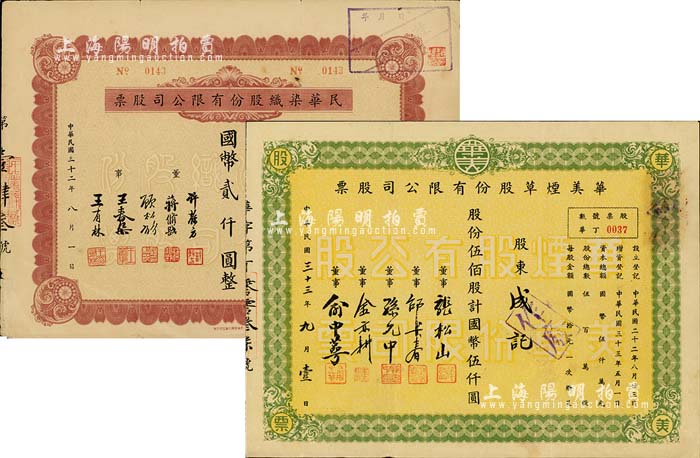 上海陽明拍賣
www.yangmingauction.com
年 月 日
Nº 0143
Nº 0143
票股司公限有份股織染華民
國幣貳仟圓整
董事
蔣
王春
王有林
中華民國三十二年八月一日
第
號
股
華
華美
票股司公限有份股草煙美華
股票號數
華丁 0037
設立登記 中華民國二十二年八月
增資登記 中華民國三十三年五月一日
資本總額 國幣伍仟萬
股份總數 伍百萬
每股金額 國幣拾元一次
股東 成記
股份伍佰股計國幣伍仟圓
董事 張松山
董事
董事 孫允中
董事 金
董事 俞中
中華民國三十三年九月壹日
華字第丁
號
票
美
上海陽明拍賣
www.yangmingauction.com